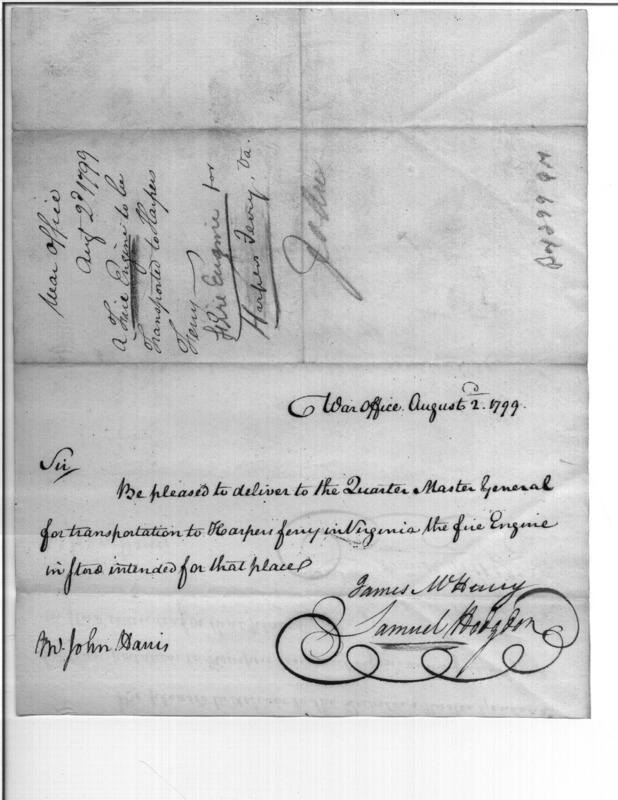 War Office
Aug 2d 1799
A Fire Engine to be
Transported to Harpers
Ferry
Fire Engine for
Harpers Ferry, Va.
War Office. August 2d. 1799.
Sir,
Be pleased to deliver to the Quarter Master General
for transportation to Harpers ferry in Virginia the fire Engine
in store intended for that place
James McHenry
Samuel Hodgdon
Mr. John Harris